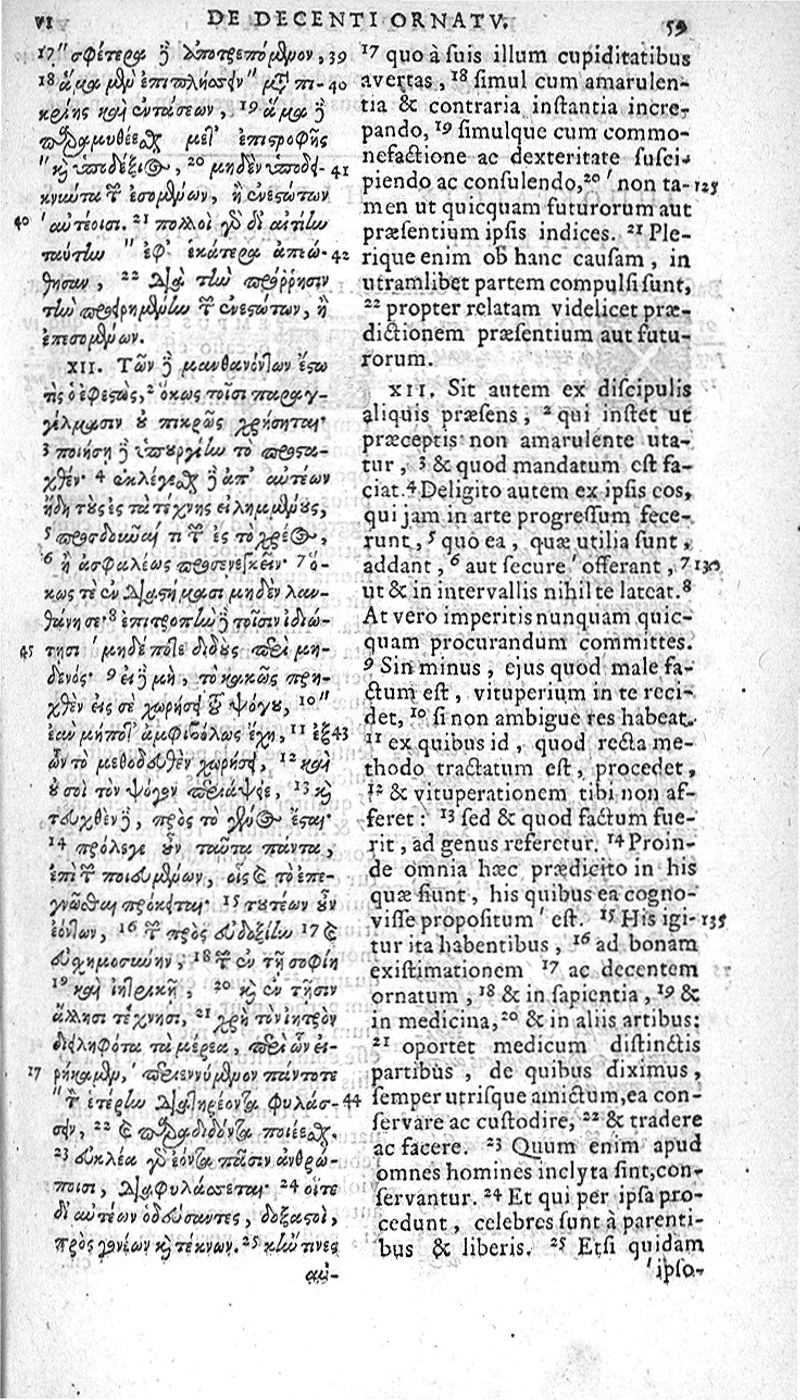 VI DE DECENTI ORNATV. 59
17 " σφέτερα ἢ ἀποτρεπόμενον, 39
18 ἅμα μὲν ἐπιπλήσσειν " μετὰ πι- 40
κρίης καὶ ἐντάσεων, 19 ἅμα ἢ
παραμυθέεσθαι μετ' ἐπιστροφῆς
" καὶ ὑποδέξιος, 20 μηδὲν ὑποδει- 41
κνύοντα τῶν ἐσομένων, ἢ ἐνεστώτων
40 ' αὐτέοισι. 21 πολλοὶ γὰρ δι' αἰτίην
ταύτην " ἐφ' ἑκάτερα ἀπεώ- 42
θησαν, 22 διὰ τὴν πρόῤῥησιν
τὴν προειρημένην τῶν ἐνεστώτων, ἢ
ἐπεσομένων.
XII. Τῶν δὲ μανθανόντων ἔστω
τὶς ὁ ἐφεστὼς, 2 ὅκως τοῖσι παραγ-
γέλμασιν οὐ πικρῶς χρήσηται·
3 ποιήση δὲ ὑπουργίην τὸ προστα-
χθέν· 4 ἐκλέγεσθαι δὲ ἀπ' αὐτέων
ἤδη τοὺς ἐς τὰ τέχνης εἰλημμένους,
5 προσδοῦναί τι τῶν ἐς τὸ χρέος,
6 ἢ ἀσφαλέως προσενεγκεῖν· 7 ὅ-
κως τε ἐν διαστήμασι μηδὲν λαν-
θάνῃ σε· 8 ἐπιτροπὴν δὲ τοῖσιν ἰδιώ-
45 τησι ' μηδέποτε διδοὺς περὶ μη-
δενός· 9 εἰ δὲ μὴ, τὸ κακῶς πρη-
χθὲν εἰς σὲ χωρήσει τοῦ ψόγου, 10 "
ἐὰν μήποτ' ἀμφιβόλως ἔχῃ, 11 ἐξ 43
ὧν τὸ μεθοδευθὲν χωρήσει, 12 καὶ
οὐ σοὶ τὸν ψόγον περιάψει, 13 καὶ
τευχθὲν δὲ, πρὸς τὸ γένος ἔσται·
14 πρόλεγε οὖν ταῦτα πάντα,
ἐπὶ τῶν ποιευμένων, οἷς καὶ τὸ ἐπε-
γνῶσθαι πρόκειται· 15 τουτέων οὖν
ἐόντων, 16 τῶν πρὸς εὐδοξίην 17 καὶ
εὐσχημοσύνην, 18 τῶν ἐν τῇ σοφίῃ
19 καὶ ἰητρικῇ, 20 καὶ ἐν τῇσιν
ἄλλησι τέχνησι, 21 χρὴ τὸν ἰητρὸν
διειληφότα τὰ μέρεα, περὶ ὧν εἰ-
17 ρήκαμεν, ' περιεννύμενον πάντοτε
" τὴν ἑτέρην διατηρέοντα φυλάσ- 44
σειν, 22 καὶ παραδιδόντα ποιέεσθαι.
23 εὐκλέα γὰρ ἐόντα πᾶσιν ἀνθρώ-
ποισι, διαφυλάσσεται· 24 οἵτε
δι' αὐτέων ὁδεύσαντες, δοξαστοὶ,
πρὸς γονέων καὶ τέκνων. 25 κἤν τινες
αὐ-
17 quo à suis illum cupiditatibus
avertas, 18 simul cum amarulen-
tia & contraria instantia incre-
pando, 19 simulque cum commo-
nefactione ac dexteritate susci-
piendo ac consulendo, 20 ' non ta- 125
men ut quicquam futurorum aut
præsentium ipsis indices. 21 Ple-
rique enim ob hanc causam, in
utramlibet partem compulsi sunt,
22 propter relatam videlicet præ-
dictionem præsentium aut futu-
rorum.
XII. Sit autem ex discipulis
aliquis præsens, 2 qui instet ut
præceptis non amarulente uta-
tur, 3 & quod mandatum est fa-
ciat. 4 Deligito autem ex ipsis eos,
qui jam in arte progressum fece-
runt, 5 quo ea, quæ utilia sunt,
addant, 6 aut secure ' offerant, 7 130
ut & in intervallis nihil te lateat. 8
At vero imperitis nunquam quic-
quam procurandum committes.
9 Sin minus, ejus quod male fa-
ctum est, vituperium in te reci-
det, 10 si non ambigue res habeat.
11 ex quibus id, quod recta me-
thodo tractatum est, procedet,
12 & vituperationem tibi non af-
feret: 13 sed & quod factum fue-
rit, ad genus referetur. 14 Proin-
de omnia hæc prædicito in his
quæ fiunt, his quibus ea cogno-
visse propositum ' est. 15 His igi- 135
tur ita habentibus, 16 ad bonam
existimationem 17 ac decentem
ornatum, 18 & in sapientia, 19 &
in medicina, 20 & in aliis artibus:
21 oportet medicum distinctis
partibus, de quibus diximus,
semper utrisque amictum, ea con-
servare ac custodire, 22 & tradere
ac facere. 23 Quum enim apud
omnes homines inclyta sint, con-
servantur. 24 Et qui per ipsa pro-
cedunt, celebres sunt à parenti-
bus & liberis. 25 Etsi quidam
' ipso-